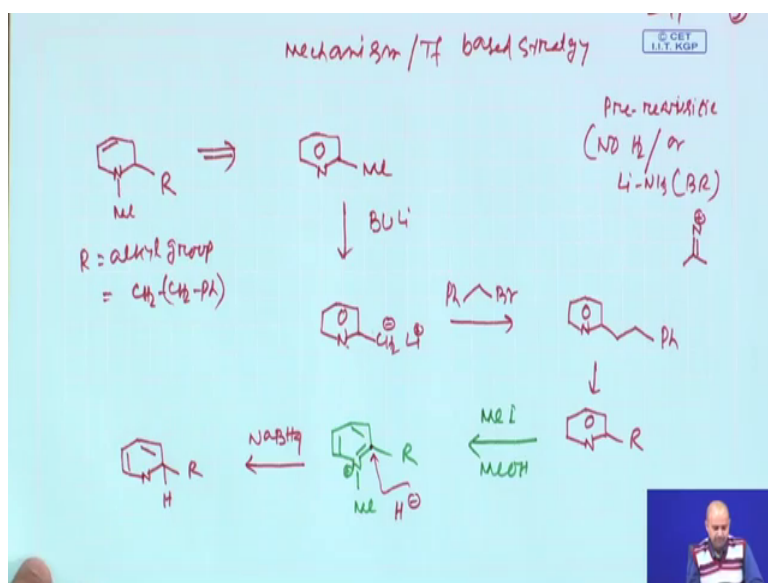 Mechanism/TF based strategy
© CET
I.I.T. KGP
Pre-requisitie
(NO H2/or
Li-NH3(BR)
N ⊕
N
Me
R
⇒
O
N
Me
R = alkyl group
= CH2-(CH2-Ph)
BuLi
O
N
⊖
CH2 Li⊕
Ph Br
O
N
Ph
O
N
R
MeI
MeOH
⊕ N
R
Me
H⊖
NaBH4
N
R
H